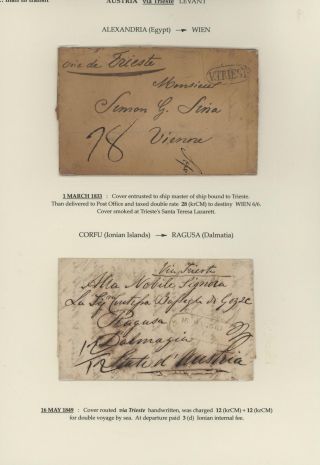 AUSTRIA via Trieste LEVANT
ALEXANDRIA (Egypt) → WIEN
via de Trieste
V.TRIEST
Monsieur
Simon G. Sina
Vienne
28
1 MARCH 1833 : Cover entrusted to ship master of ship bound to Trieste.
Than delivered to Post Office and taxed double rate 28 (krCM) to destiny WIEN 6/6.
Cover smoked at Trieste's Santa Teresa Lazarett.
CORFU (Ionian Islands) → RAGUSA (Dalmatia)
Via Trieste
Alla Nobile Signora
La Sig
Ragusa
Dalmazia
12
12 Stati d'Austria
16 MAY 1849 : Cover routed via Trieste handwritten, was charged 12 (krCM) + 12 (krCM)
for double voyage by sea. At departure paid 3 (d) Ionian internal fee.